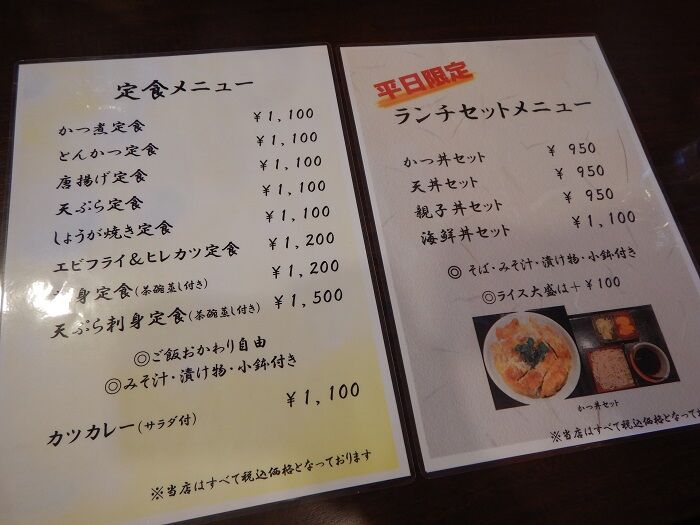 定食メニュー
かつ煮定食 ¥1,100
とんかつ定食 ¥1,100
唐揚げ定食 ¥1,100
天ぷら定食 ¥1,100
しょうが焼き定食 ¥1,100
エビフライ&ヒレカツ定食 ¥1,200
身定食(茶碗蒸し付き) ¥1,200
天ぷら刺身定食(茶碗蒸し付き) ¥1,500
◎ご飯おかわり自由
◎みそ汁・漬け物・小鉢付き
カツカレー(サラダ付) ¥1,100
※当店はすべて税込価格となっております
平日限定
ランチセットメニュー
かつ丼セット ¥ 950
天丼セット ¥ 950
親子丼セット ¥ 950
海鮮丼セット ¥1,100
◎ そば・みそ汁・漬け物・小鉢付き
◎ライス大盛は+¥100
かつ丼セット
※当店はすべて税込価格となってお